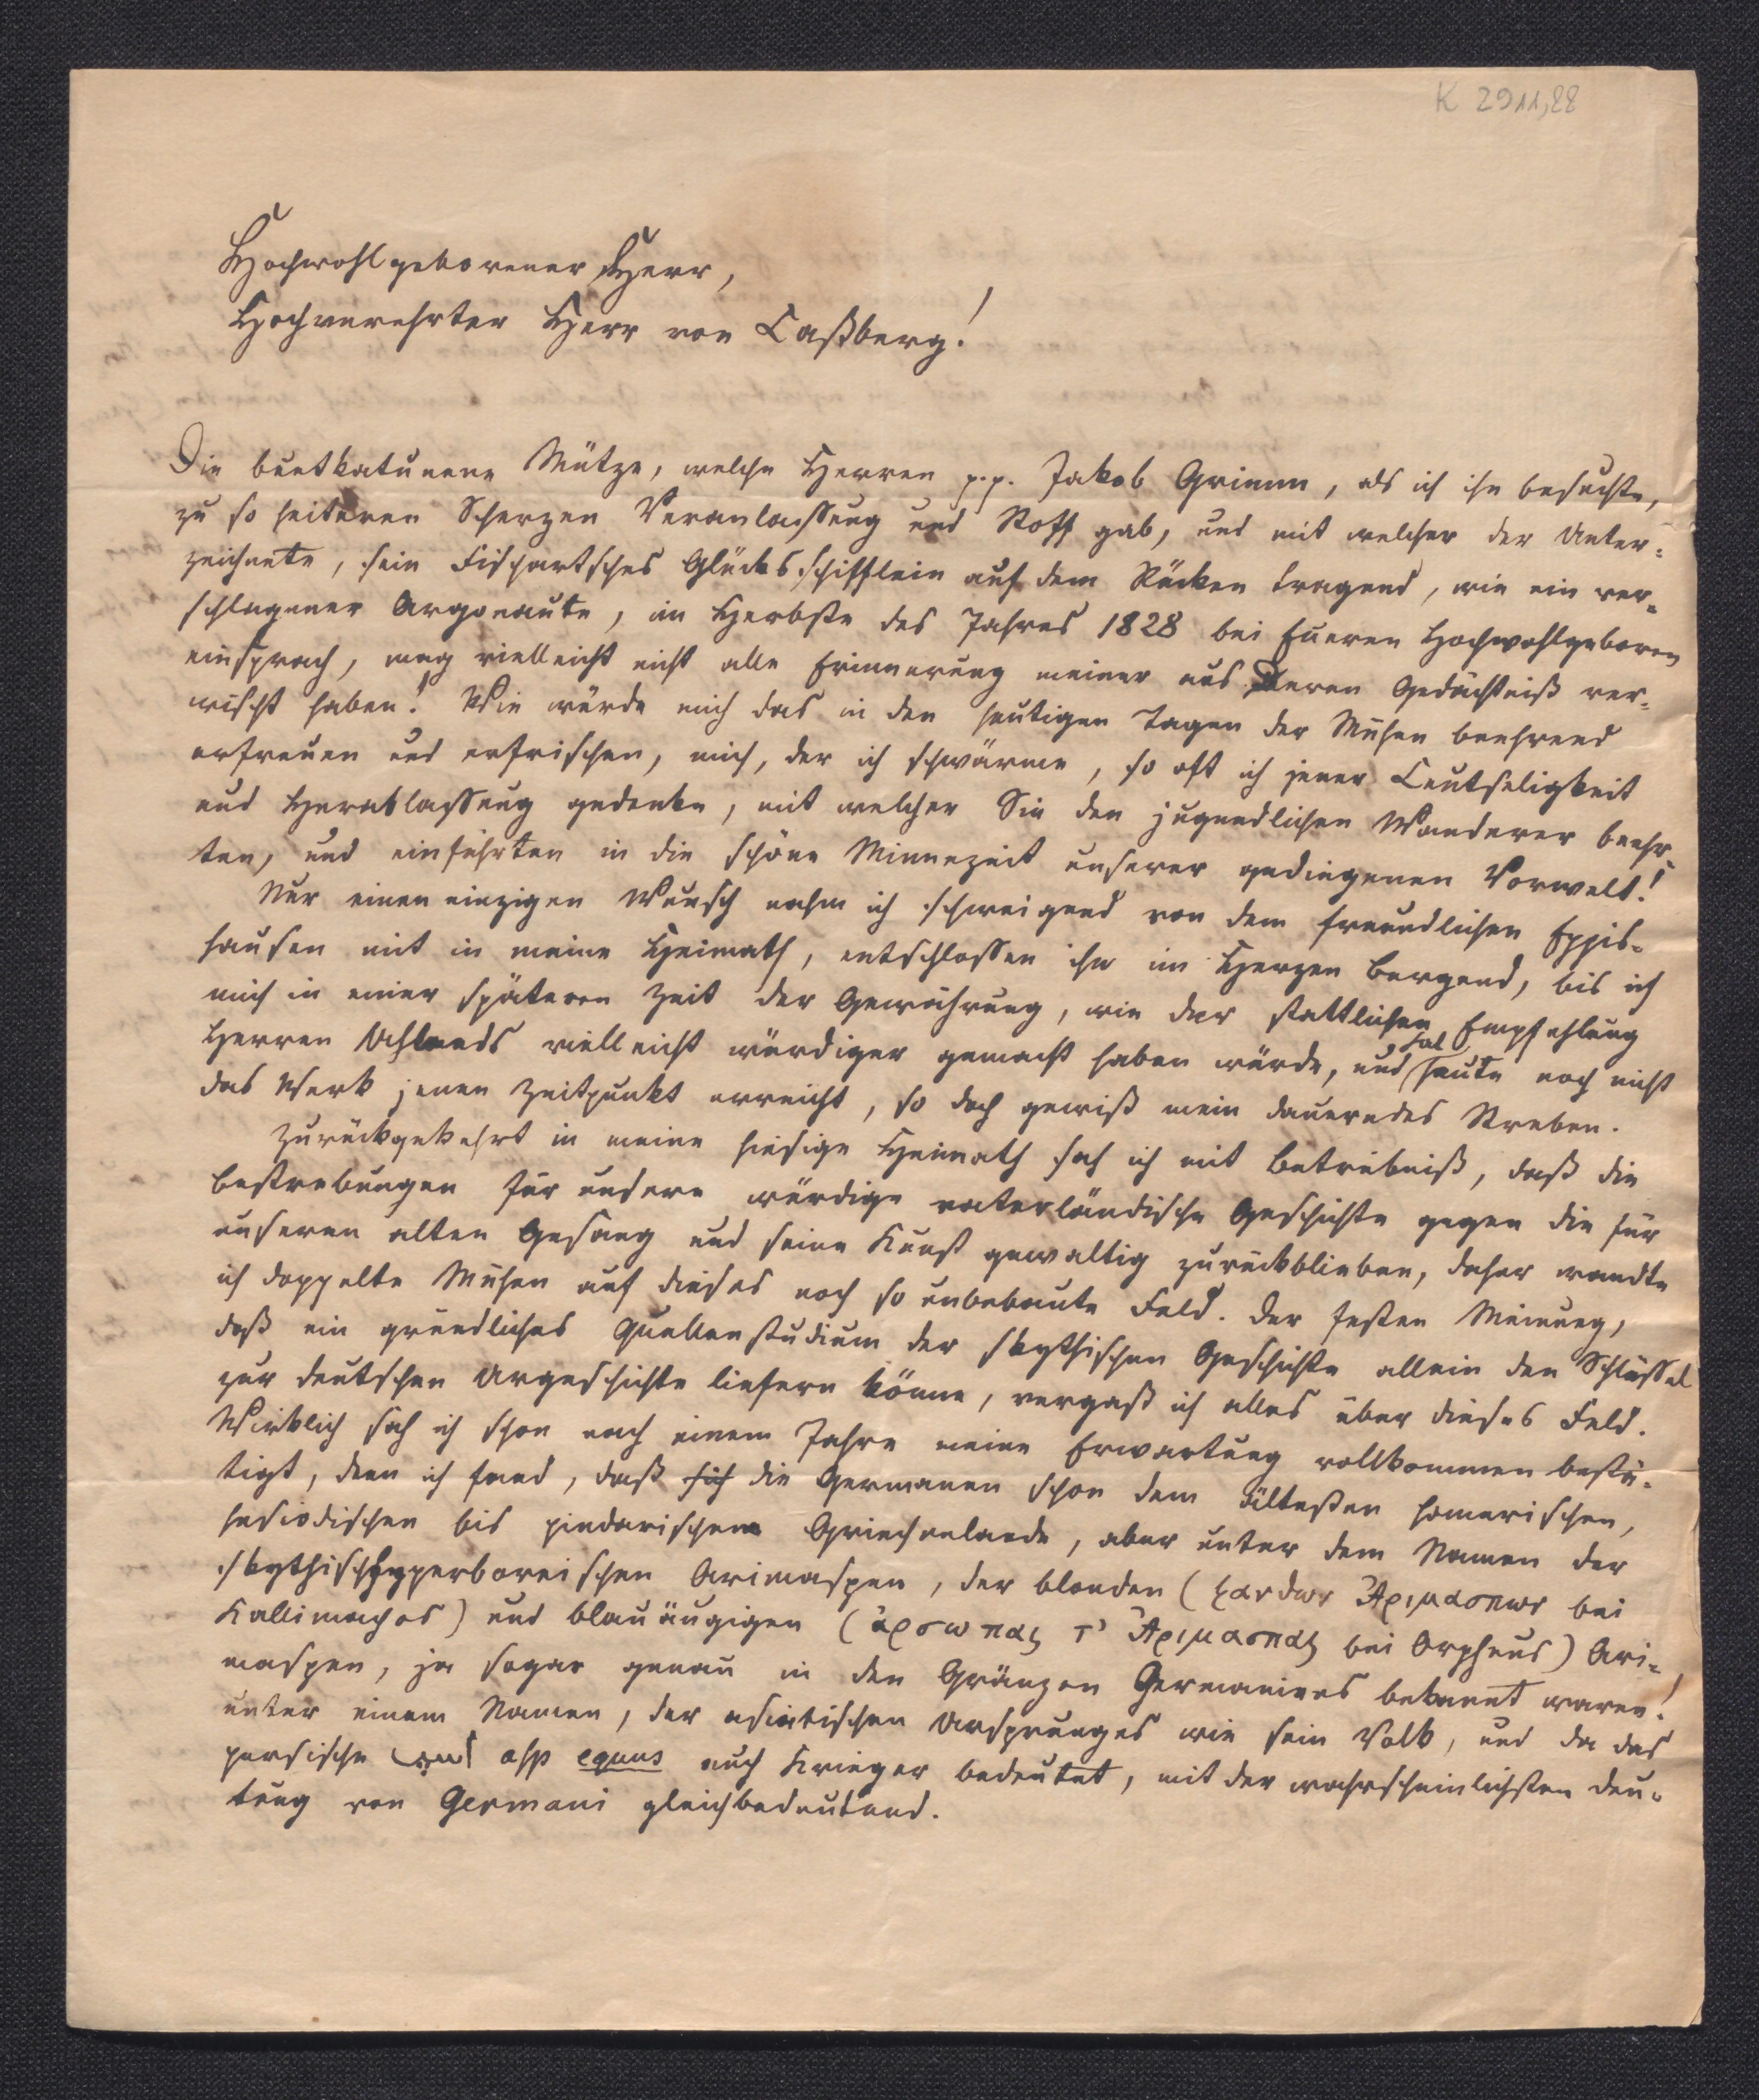 K 2911,28
Hochwohlgeborener Herr,
Hochverehrter Herr von Laßberg!
Die buntkatunene Mütze, welche Herren p.p. Jakob Grimm, als ich ihn besuchte,
zu so heiteren Scherzen Veranlassung und Stoff gab, und mit welcher der Unter-
zeichnete, sein Fischartsches Glücksschifflein auf dem Rücken tragend, wie ein ver-
schlagener Argonaute, im Herbste des Jahres 1828 bei Eueren Hochwohlgeboren
einsprach, mag vielleicht nicht alle Erinnerung meiner aus Deren Gedächtniß ver-
wischt haben! Wie würde mich das in den heutigen Tagen der Mühen beehrend
erfreuen und erfrischen, mich, der ich schwärme, so oft ich jener Leutseligkeit
und Herablassung gedenke, mit welcher Sie den jugendlichen Wanderer beehr-
ten, und einführten in die schöne Minnezeit unserer gediegenen Vorwelt!
Nur einen einzigen Wunsch nahm ich schweigend von dem freundlichen Eppis-
hausen mit in meine Heimath, entschlossen ihn im Herzen bergend, bis ich
mich in einer späteren Zeit der Gewährung, wie der stattlichen Empfehlung
Herren Uhlands vielleicht würdiger gemacht haben würde, und hat heute noch nicht
das Werk jenen Zeitpunkt erreicht, so doch gewiß mein dauerndes Streben.
Zurückgekehrt in meine hiesige Heimath sah ich mit Betrübniß, daß die
Bestrebungen für unsere würdige vaterländische Geschichte gegen die für
unseren alten Gesang und seine Kunst gewaltig zurückblieben, daher wandte
ich doppelte Mühen auf dieses noch so unbebaute Feld. Der festen Meinung,
daß ein gründliches Quellenstudium der skythischen Geschichte allein den Schlüssel
zur deutschen Urgeschichte liefern könne, vergaß ich alles über dieses Feld.
Wirklich sah ich schon nach einem Jahre meine Erwartung vollkommen bestä-
tigt, denn ich fand, daß sich die Germanen schon dem ältesten homerischen,
hesiodischen bis pindarischen Griechenlande, aber unter dem Namen der
skythischhyperboreischen Arimaspen, der blonden (ξανθων Ἀριμασπων bei
Kallimachos) und blauäugigen (ἀρσωπας τ' Ἀριμασπας bei Orpheus) Ari-
maspen, ja sogar genau in den Gränzen Germaniens bekannt waren!
unter einem Namen, der asiatischen Ursprunges wie sein Volk, und da das
persische اسپ asp equus auch Krieger bedeutet, mit der wahrscheinlichsten Deu-
tung von Germani gleichbedeutend.